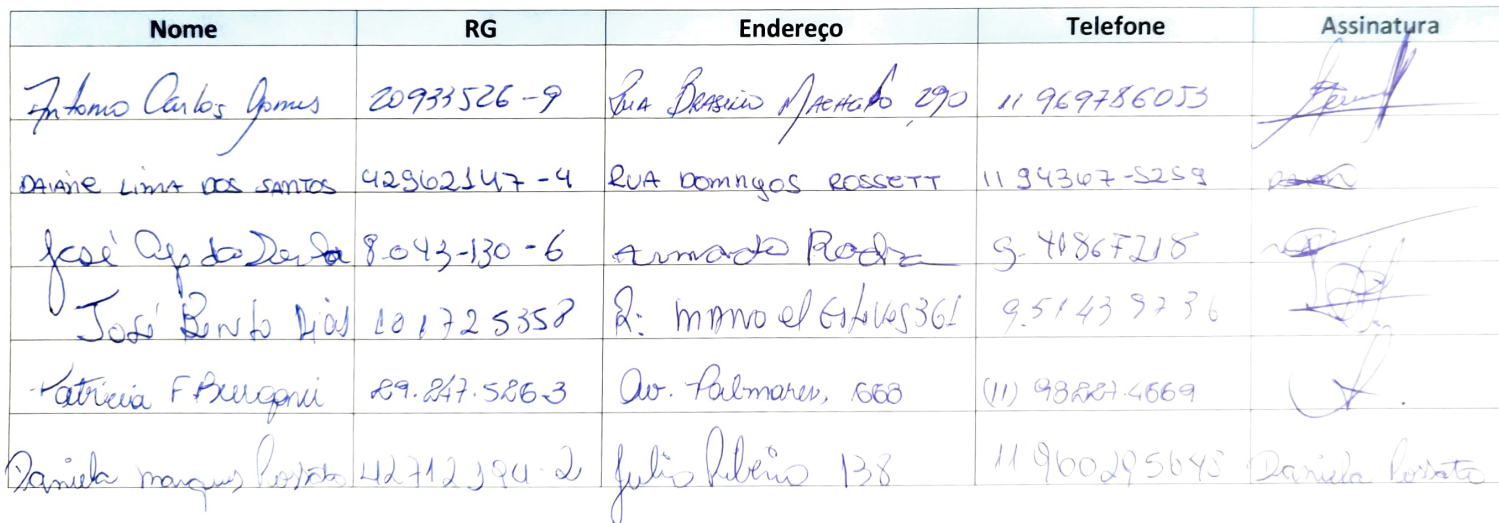 Nome RG Endereço Telefone Assinatura
Antonio Carlos Gomes 20933526-9 Rua Brasilio Machado, 290 11 969786053
DAIANE LIMA DOS SANTOS 42962147-4 RUA DOMINGOS ROSSETT 11 94367-5259
José Ap. da 8.043-130-6 9.
José Bento Dias 101725358 R: MANOEL 361 9.51439736
Patricia F 29.247.526-3 Av. Palmares, 668 (11) 98227.4669
Daniela marques Possato 42712194-2 Julio Ribeiro 138 11 960295645 Daniela Possato